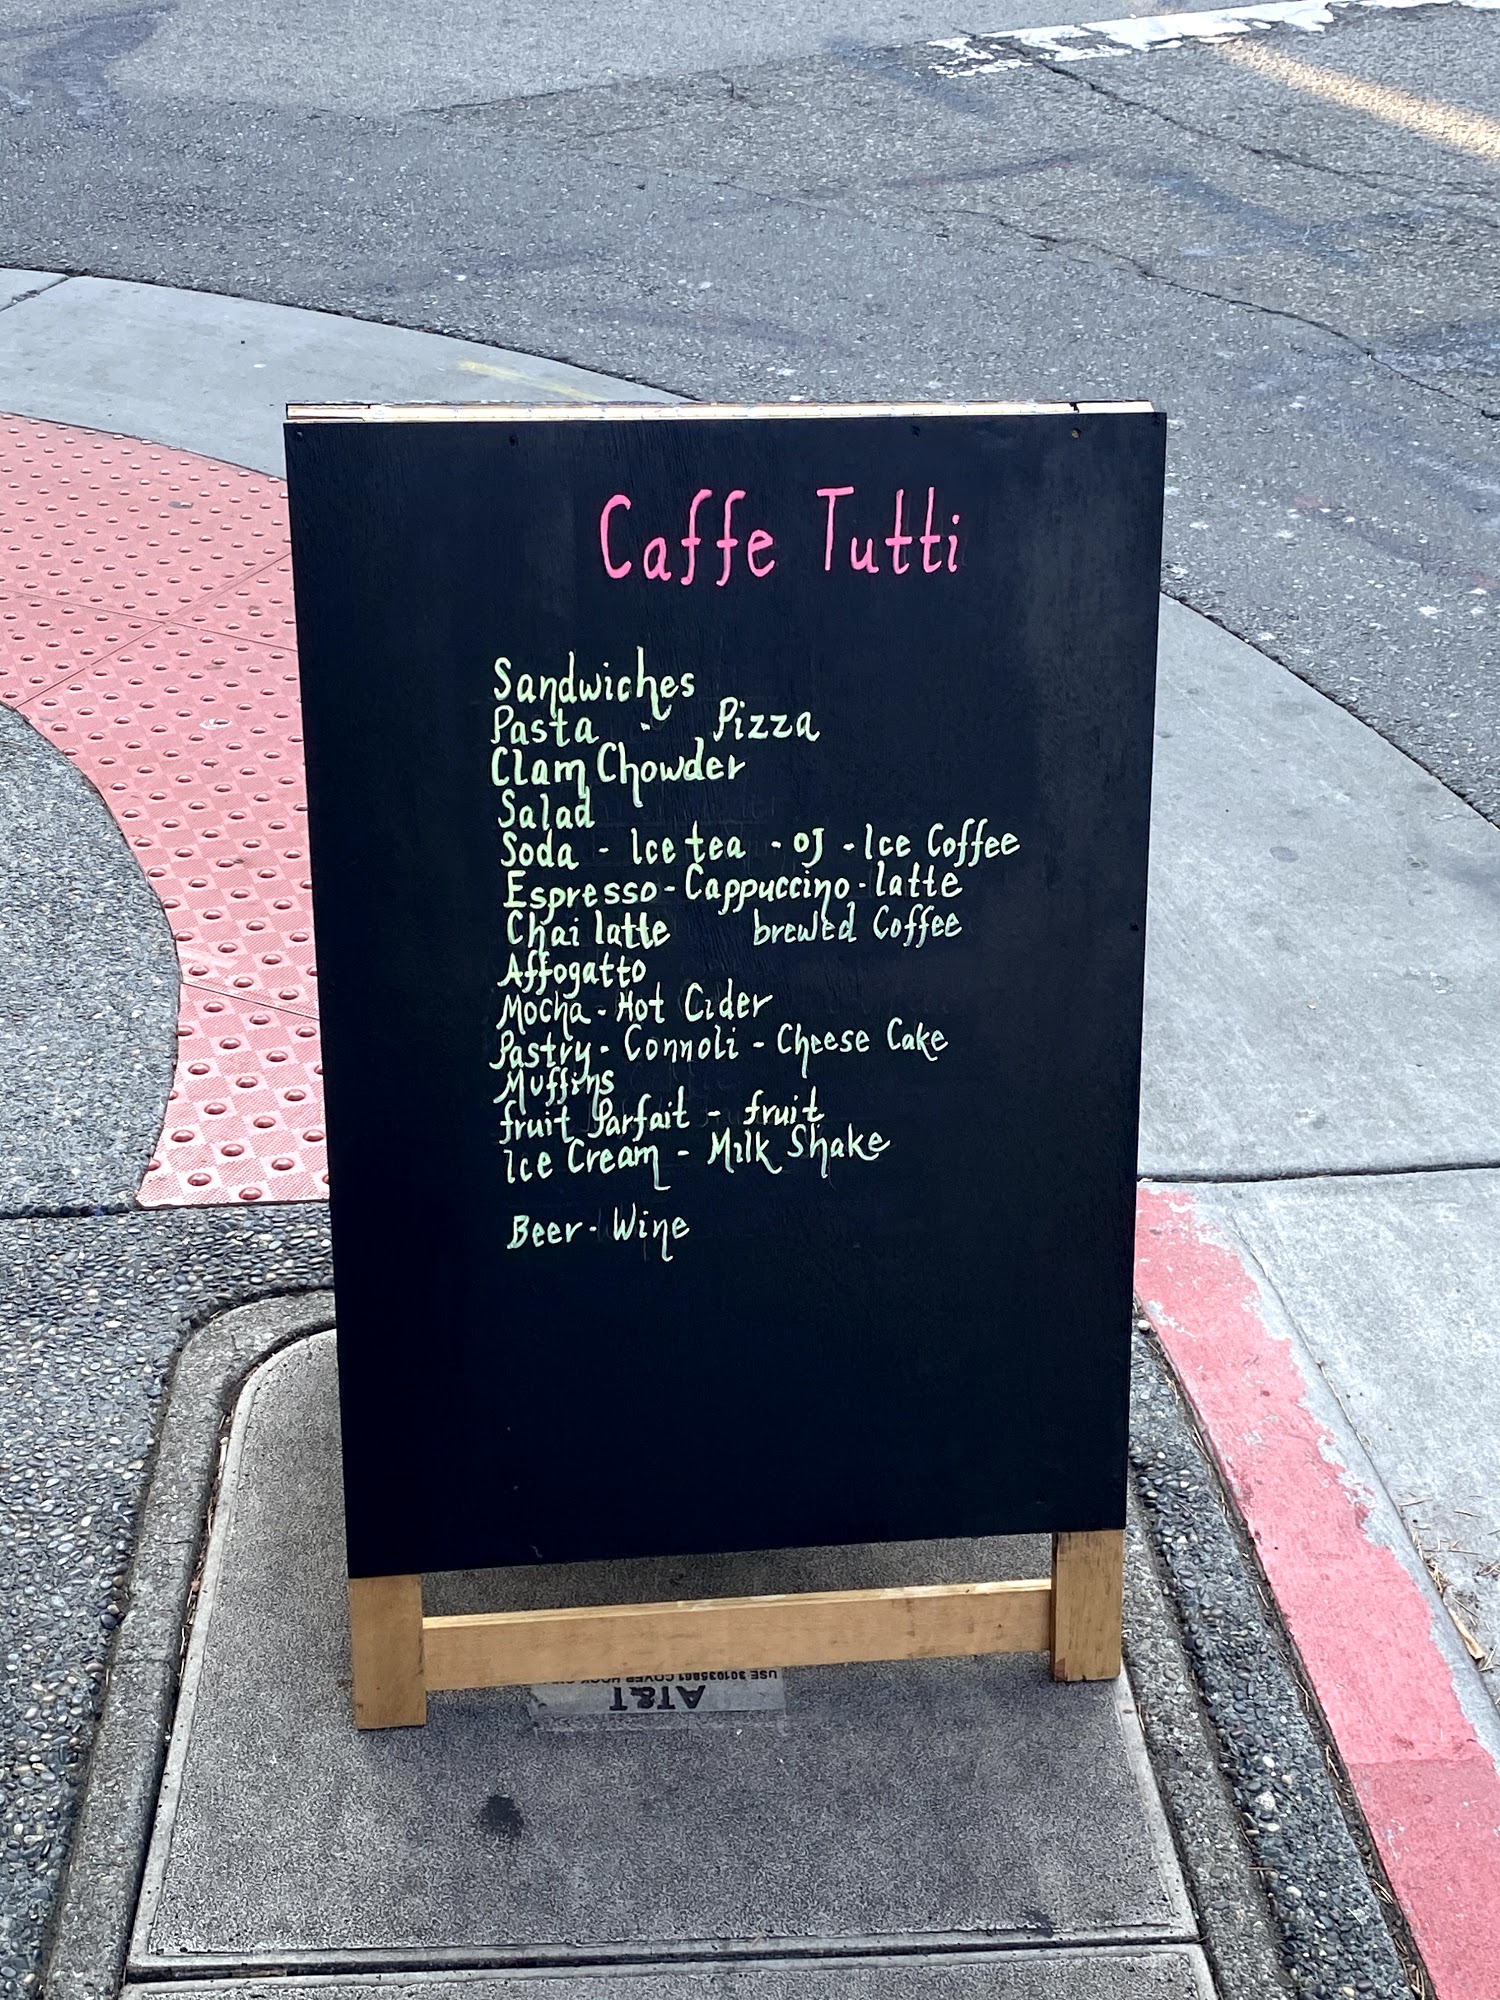 Caffe Tutti
Sandwiches
Pasta - Pizza
Clam Chowder
Salad
Soda - Ice tea - OJ - Ice Coffee
Espresso - Cappuccino - latte
Chai latte brewed Coffee
Affogatto
Mocha - Hot Cider
Pastry - Connoli - Cheese Cake
Muffins
fruit Parfait - fruit
Ice Cream - Milk Shake
Beer - Wine
AT&T
USE 301035861 COVER HOOK